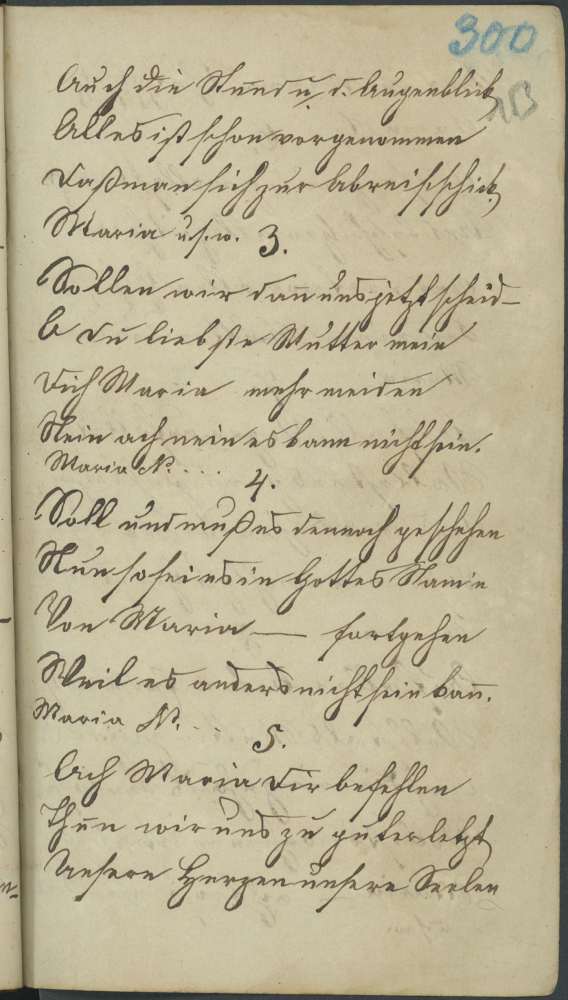 300
Auch die Stund u. d. Augenblick
Alles ist schon vorgenommen
Daß man sich zur Abreis schick.
Maria u.s.w. 3.
Sollen wir dan̄ uns jetzt scheid-
O du liebste Mutter mein
Dich Maria mehr meiden
Nein ach nein es kann nicht sein.
Maria N. ...
4.
Soll und muß es dennoch geschehen
Nun so sei es in Gottes Nam̄e
Von Maria — fortgehen
Weil es anders nicht sein kan̄.
Maria N. ...
5.
Ach Maria Dir befehlen
Thun wir uns zu guter letzt
Unsere Herzen unsere Seelen